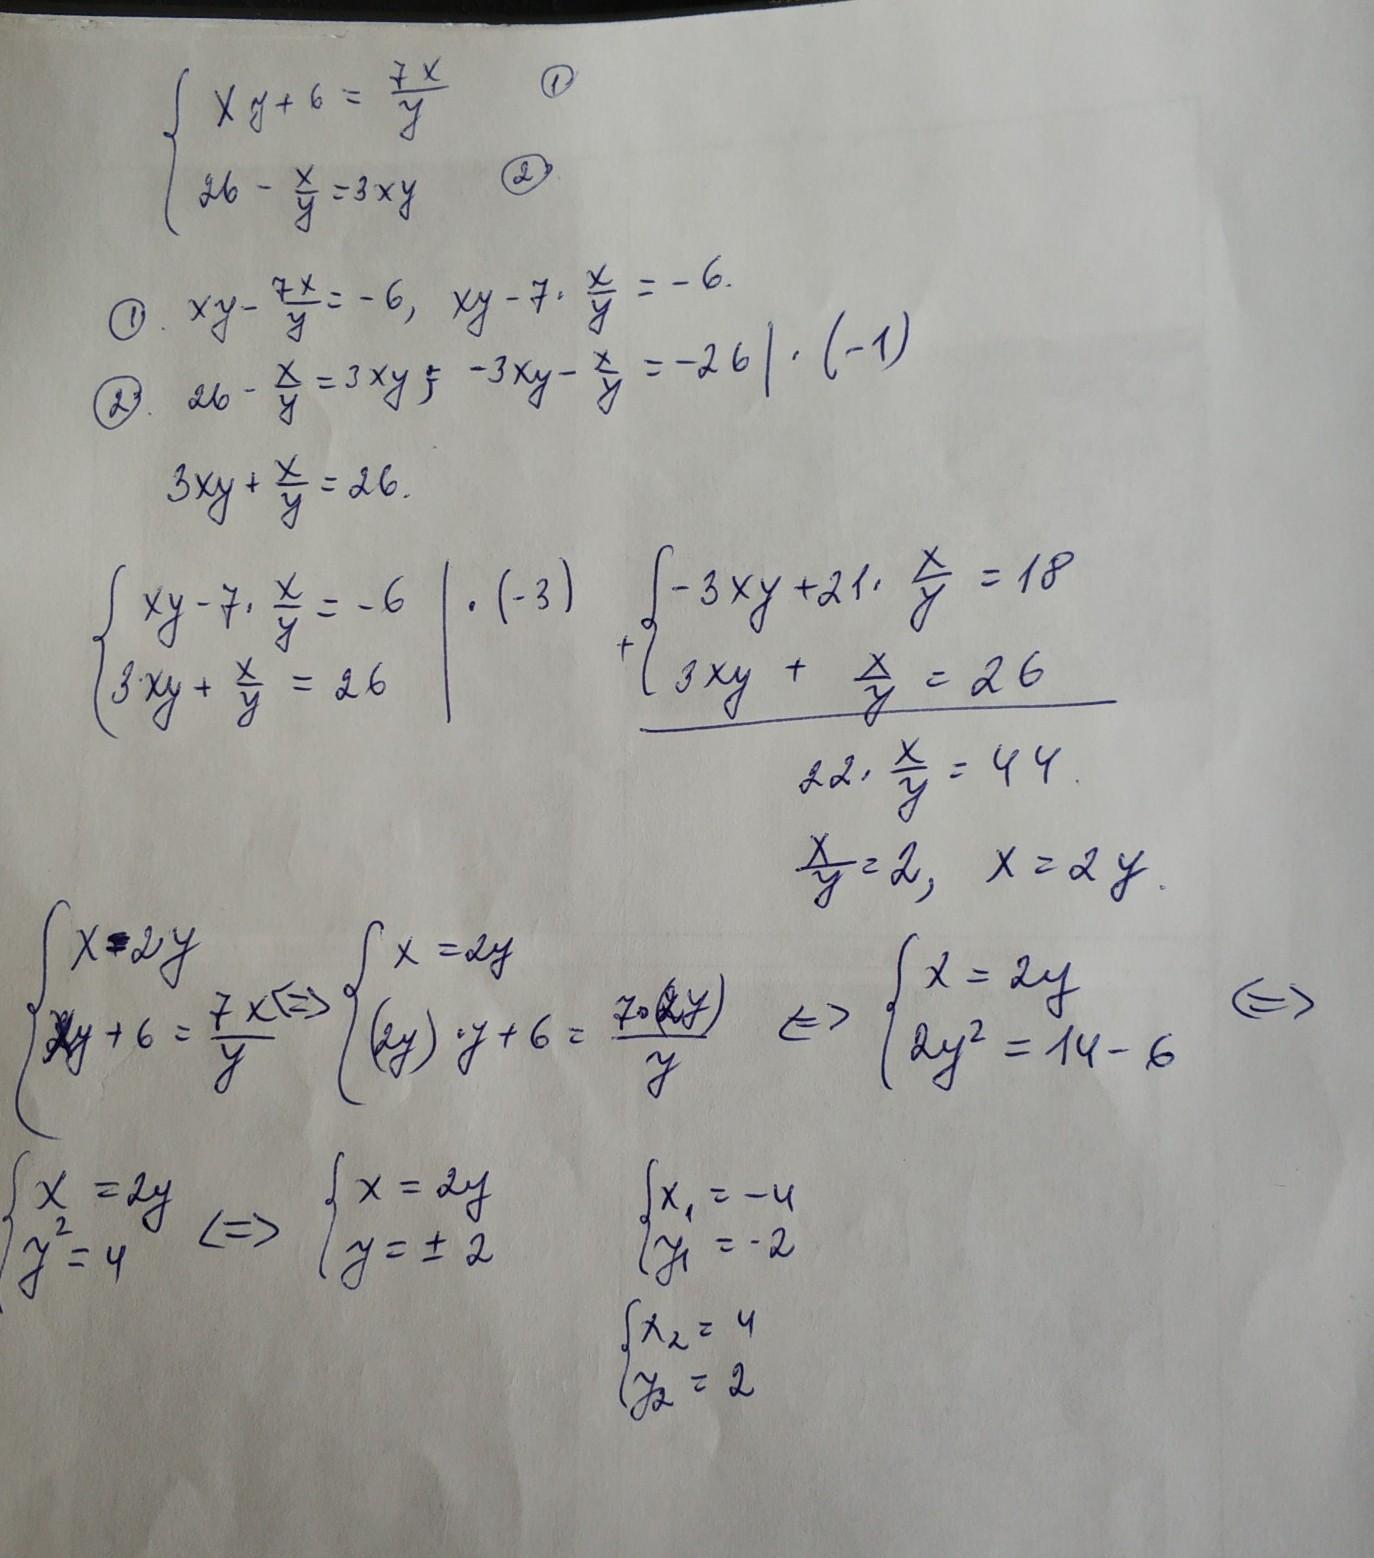 { xy + 6 = 7x/y ①
26 - x/y = 3xy ②
①. xy - 7x/y = -6, xy - 7 · x/y = -6.
②. 26 - x/y = 3xy; -3xy - x/y = -26 | · (-1)
3xy + x/y = 26.
{ xy - 7 · x/y = -6 | · (-3)
3·xy + x/y = 26
+ { -3xy + 21 · x/y = 18
3xy + x/y = 26
22 · x/y = 44.
x/y = 2, x = 2y.
{ x = 2y
xy + 6 = 7x/y <=>
{ x = 2y
(2y) · y + 6 = 7·(2y)/y <=>
{ x = 2y
2y² = 14 - 6 <=>
{ x = 2y
y² = 4 <=>
{ x = 2y
y = ± 2
{ x₁ = -4
y₁ = -2
{ x₂ = 4
y₂ = 2